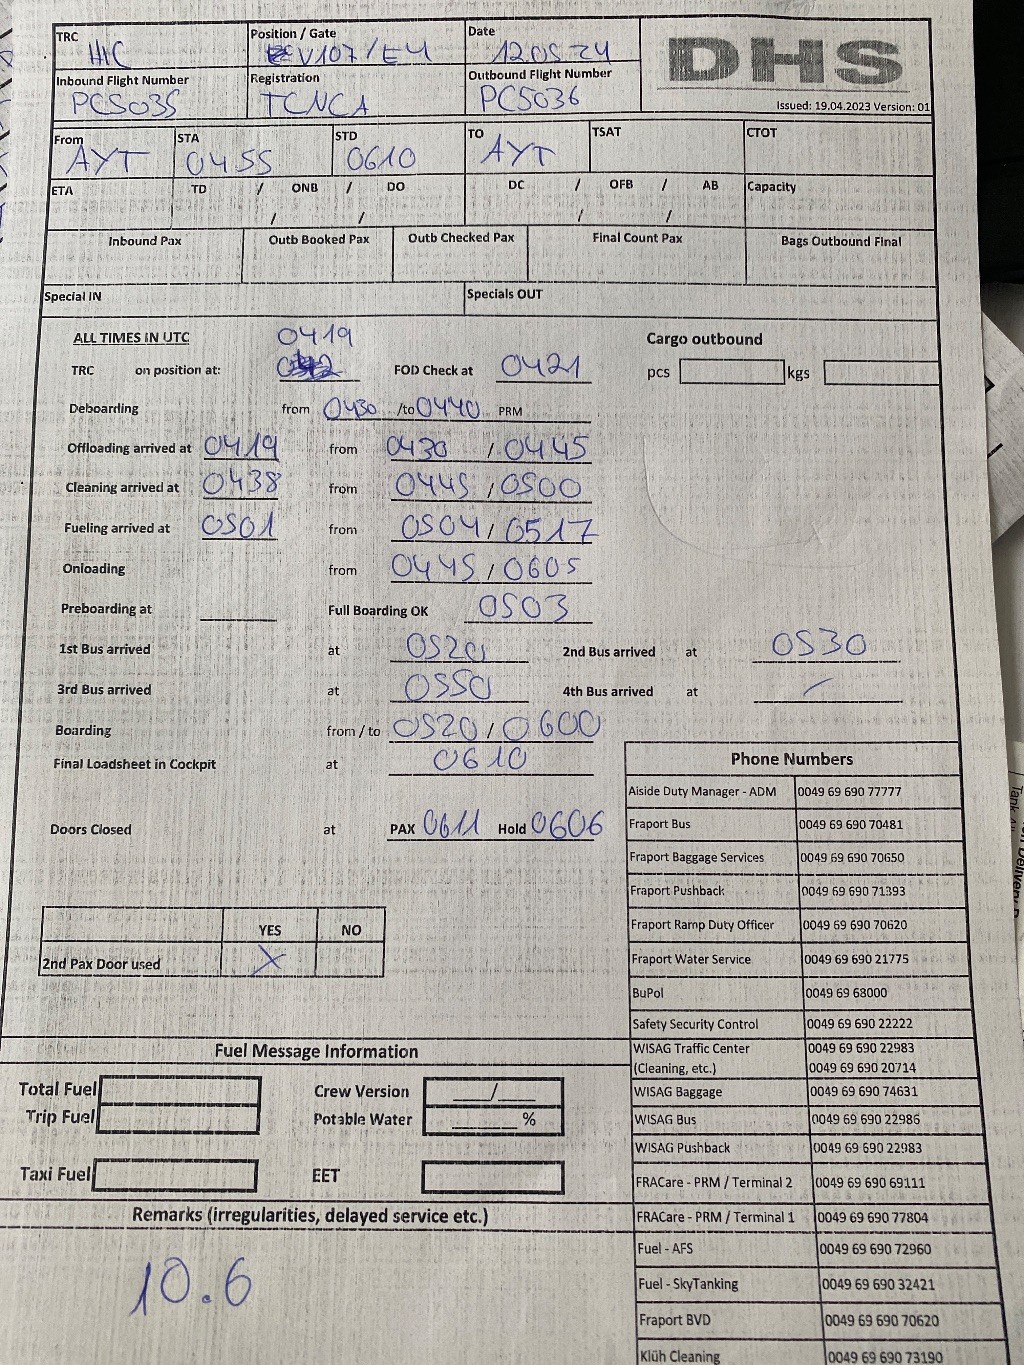 TRC Position / Gate Date DHS
HIC V107/E4 12.05.24
Inbound Flight Number Registration Outbound Flight Number
PC5035 TCNCA PC5036 Issued: 19.04.2023 Version: 01
From STA STD TO TSAT CTOT
AYT 0455 0610 AYT
ETA TD / ONB / DO DC / OFB / AB Capacity
/ / / /
Inbound Pax Outb Booked Pax Outb Checked Pax Final Count Pax Bags Outbound Final
Special IN Specials OUT
ALL TIMES IN UTC 0419 Cargo outbound
TRC on position at: FOD Check at 0421 pcs kgs
Deboarding from 0430 /to 0440 PRM
Offloading arrived at 0419 from 0430 / 0445
Cleaning arrived at 0438 from 0445 / 0500
Fueling arrived at 0501 from 0504 / 0517
Onloading from 0445 / 0605
Preboarding at Full Boarding OK 0503
1st Bus arrived at 0520 2nd Bus arrived at 0530
3rd Bus arrived at 0550 4th Bus arrived at /
Boarding from / to 0520 / 0600
Final Loadsheet in Cockpit at 0610
Doors Closed at PAX 0611 Hold 0606
YES NO
2nd Pax Door used X
Phone Numbers
Aiside Duty Manager - ADM 0049 69 690 77777
Fraport Bus 0049 69 690 70481
Fraport Baggage Services 0049 69 690 70650
Fraport Pushback 0049 69 690 71393
Fraport Ramp Duty Officer 0049 69 690 70620
Fraport Water Service 0049 69 690 21775
BuPol 0049 69 68000
Safety Security Control 0049 69 690 22222
WISAG Traffic Center 0049 69 690 22983
(Cleaning, etc.) 0049 69 690 20714
WISAG Baggage 0049 69 690 74631
WISAG Bus 0049 69 690 22986
WISAG Pushback 0049 69 690 22983
FRACare - PRM / Terminal 2 0049 69 690 69111
FRACare - PRM / Terminal 1 0049 69 690 77804
Fuel - AFS 0049 69 690 72960
Fuel - SkyTanking 0049 69 690 32421
Fraport BVD 0049 69 690 70620
Klüh Cleaning 0049 69 690 73190
Fuel Message Information
Total Fuel Crew Version ____/____
Trip Fuel Potable Water ______ %
Taxi Fuel EET
Remarks (irregularities, delayed service etc.)
10.6